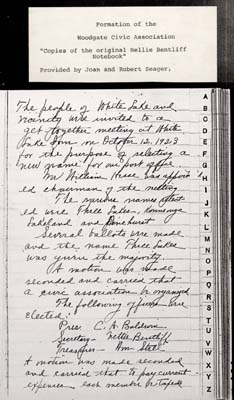 Formation of the
Woodgate Civic Association
"Copies of the original Nellie Bentliff
Notebook"
Provided by Joan and Robert Seager,
The people of White Lake and
vicinity were invited to a
get together meeting at White
Lake Inn on October 12, 1923
for the purpose of selecting a
new name for our post office
Mr William Hesse was appoint
ed chairman of the meeting.
The names
ed were Three Lakes,
Lakeland and
ballots were made
and the name Three Lakes
was the majority.
A motion was made
seconded and carried that
a civic association be organized
The following officers were
elected:
Pres. C. A. Balsom
Secretary - Nellie Bentliff
Treasurer - Wm Stell
A motion was made seconded
and carried that to pay current
expences each member be taxed
A
B
C
D
E
F
G
H
I
J
K
L
M
N
O
P
Q
R
S
T
U
V
W
X
Y
Z